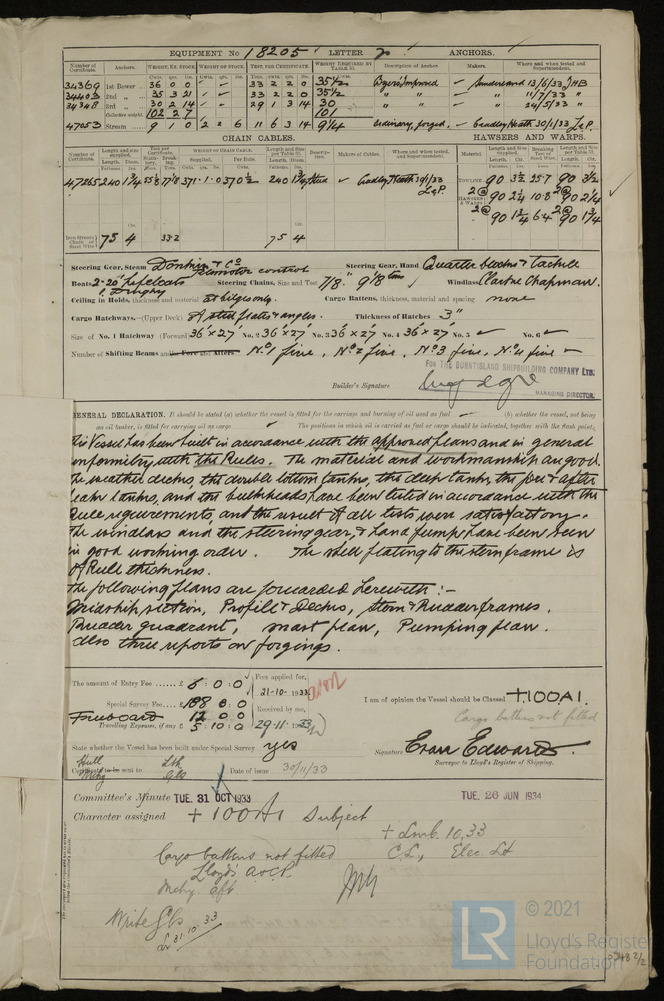 EQUIPMENT No 18205 LETTER ANCHORS.
Number of Certificate. Anchors. WEIGHT, EX. STOCK WEIGHT OF STOCK. TEST, PER CERTIFICATE. WEIGHT REQUIRED BY TABLE 53. Description of Anchor. Makers. Where and when tested and Superintendent.
34369 1st Bower 36 0 0 33 2 2 0 35½ Byers Improved Sunderland 13/6/33 JHB
34403 2nd 35 3 21 33 2 2 0 35½ 11/7/33
34348 3rd 30 2 14 29 1 3 14 30 24/5/33
Collective weight 102 2 7 101
47053 Stream 9 1 0 2 2 6 11 6 3 14 9¼ Ordinary, forged. Cradley Heath 30/1/33 L&P.
CHAIN CABLES. HAWSERS AND WARPS.
47265 240 1¾ 55·8 77·18 371·1·0 370½ 240 1¾ Stud Cradley Heath L&P.
TOWLINE 90 3½ 25·7 90 3½
HAWSERS & WARPS 2@ 90 2¼ 10·8 2@ 90 2¼
2@ 90 1¾ 6·4 2@ 90 1¾
75 4 33·2 75 4
Steering Gear, Steam Donkin & Co Telemotor control Steering Gear, Hand Quarter blocks & tackle
Boats 2-20' Lifeboats 1 Dinghy Steering Chains, Size and Test 7/8" 9 1/8 tons Windlass Clarke Chapman.
Ceiling in Holds, thickness and material at bilges only. Cargo Battens, thickness, material and spacing none
Cargo Hatchways.—(Upper Deck) of steel plates & angles. Thickness of Hatches 3"
Size of No. 1 Hatchway (Forward) 36' x 27' No. 2 36' x 27' No. 3 36' x 27' No. 4 36' x 27' No. 5 No. 6
Number of Shifting Beams and/or Fore and Afters No.1 five, No.2 five, No.3 five, No.4 five
FOR THE BURNTISLAND SHIPBUILDING COMPANY LTD.
Builder's Signature
MANAGING DIRECTOR.
GENERAL DECLARATION. It should be stated (a) whether the vessel is fitted for the carriage and burning of oil used as fuel (b) whether the vessel, not being
an oil tanker, is fitted for carrying oil as cargo The positions in which oil is carried as fuel or cargo should be indicated, together with the flash point.
This Vessel has been built in accordance with the approved plans and in general
conformity with the Rules. The material and workmanship are good.
The weather decks, the double bottom tanks, the deep tanks, the fore & after
peak tanks, and the bulkheads have been tested in accordance with the
Rule requirements, and the result of all tests were satisfactory.
The windlass and the steering gear, & hand pump have been seen
in good working order. The shell plating to the sternframe is
of Rule thickness.
The following plans are forwarded herewith :-
Midship section, Profile & Decks, Stem & Rudder frames.
Rudder quadrant, mast plan, Pumping plan.
Also three reports on forgings.
The amount of Entry Fee £ 6 : 0 : 0 Fees applied for, 21-10-1933
Special Survey Fee £ 188 : 0 : 0 Received by me,
Freeboard 12 0 0
Travelling Expenses, if any £ 5 : 10 : 0 29-11-1933
I am of opinion the Vessel should be Classed +100A1.
Cargo battens not fitted
State whether the Vessel has been built under Special Survey yes
Signature Evan Edwards.
Surveyor to Lloyd's Register of Shipping.
Hull Lth
sent to Gls Date of issue 30/11/33
Committee's Minute TUE. 31 OCT 1933 TUE. 26 JUN 1934
Character assigned +100A1 subject
+ Lmb. 10.33
Cargo battens not fitted C.L., Elec. Lt
Lloyds A & C.P.
Mchy. aft
Write Gls
31.10.33
LR
© 2021
Lloyd's Register
Foundation